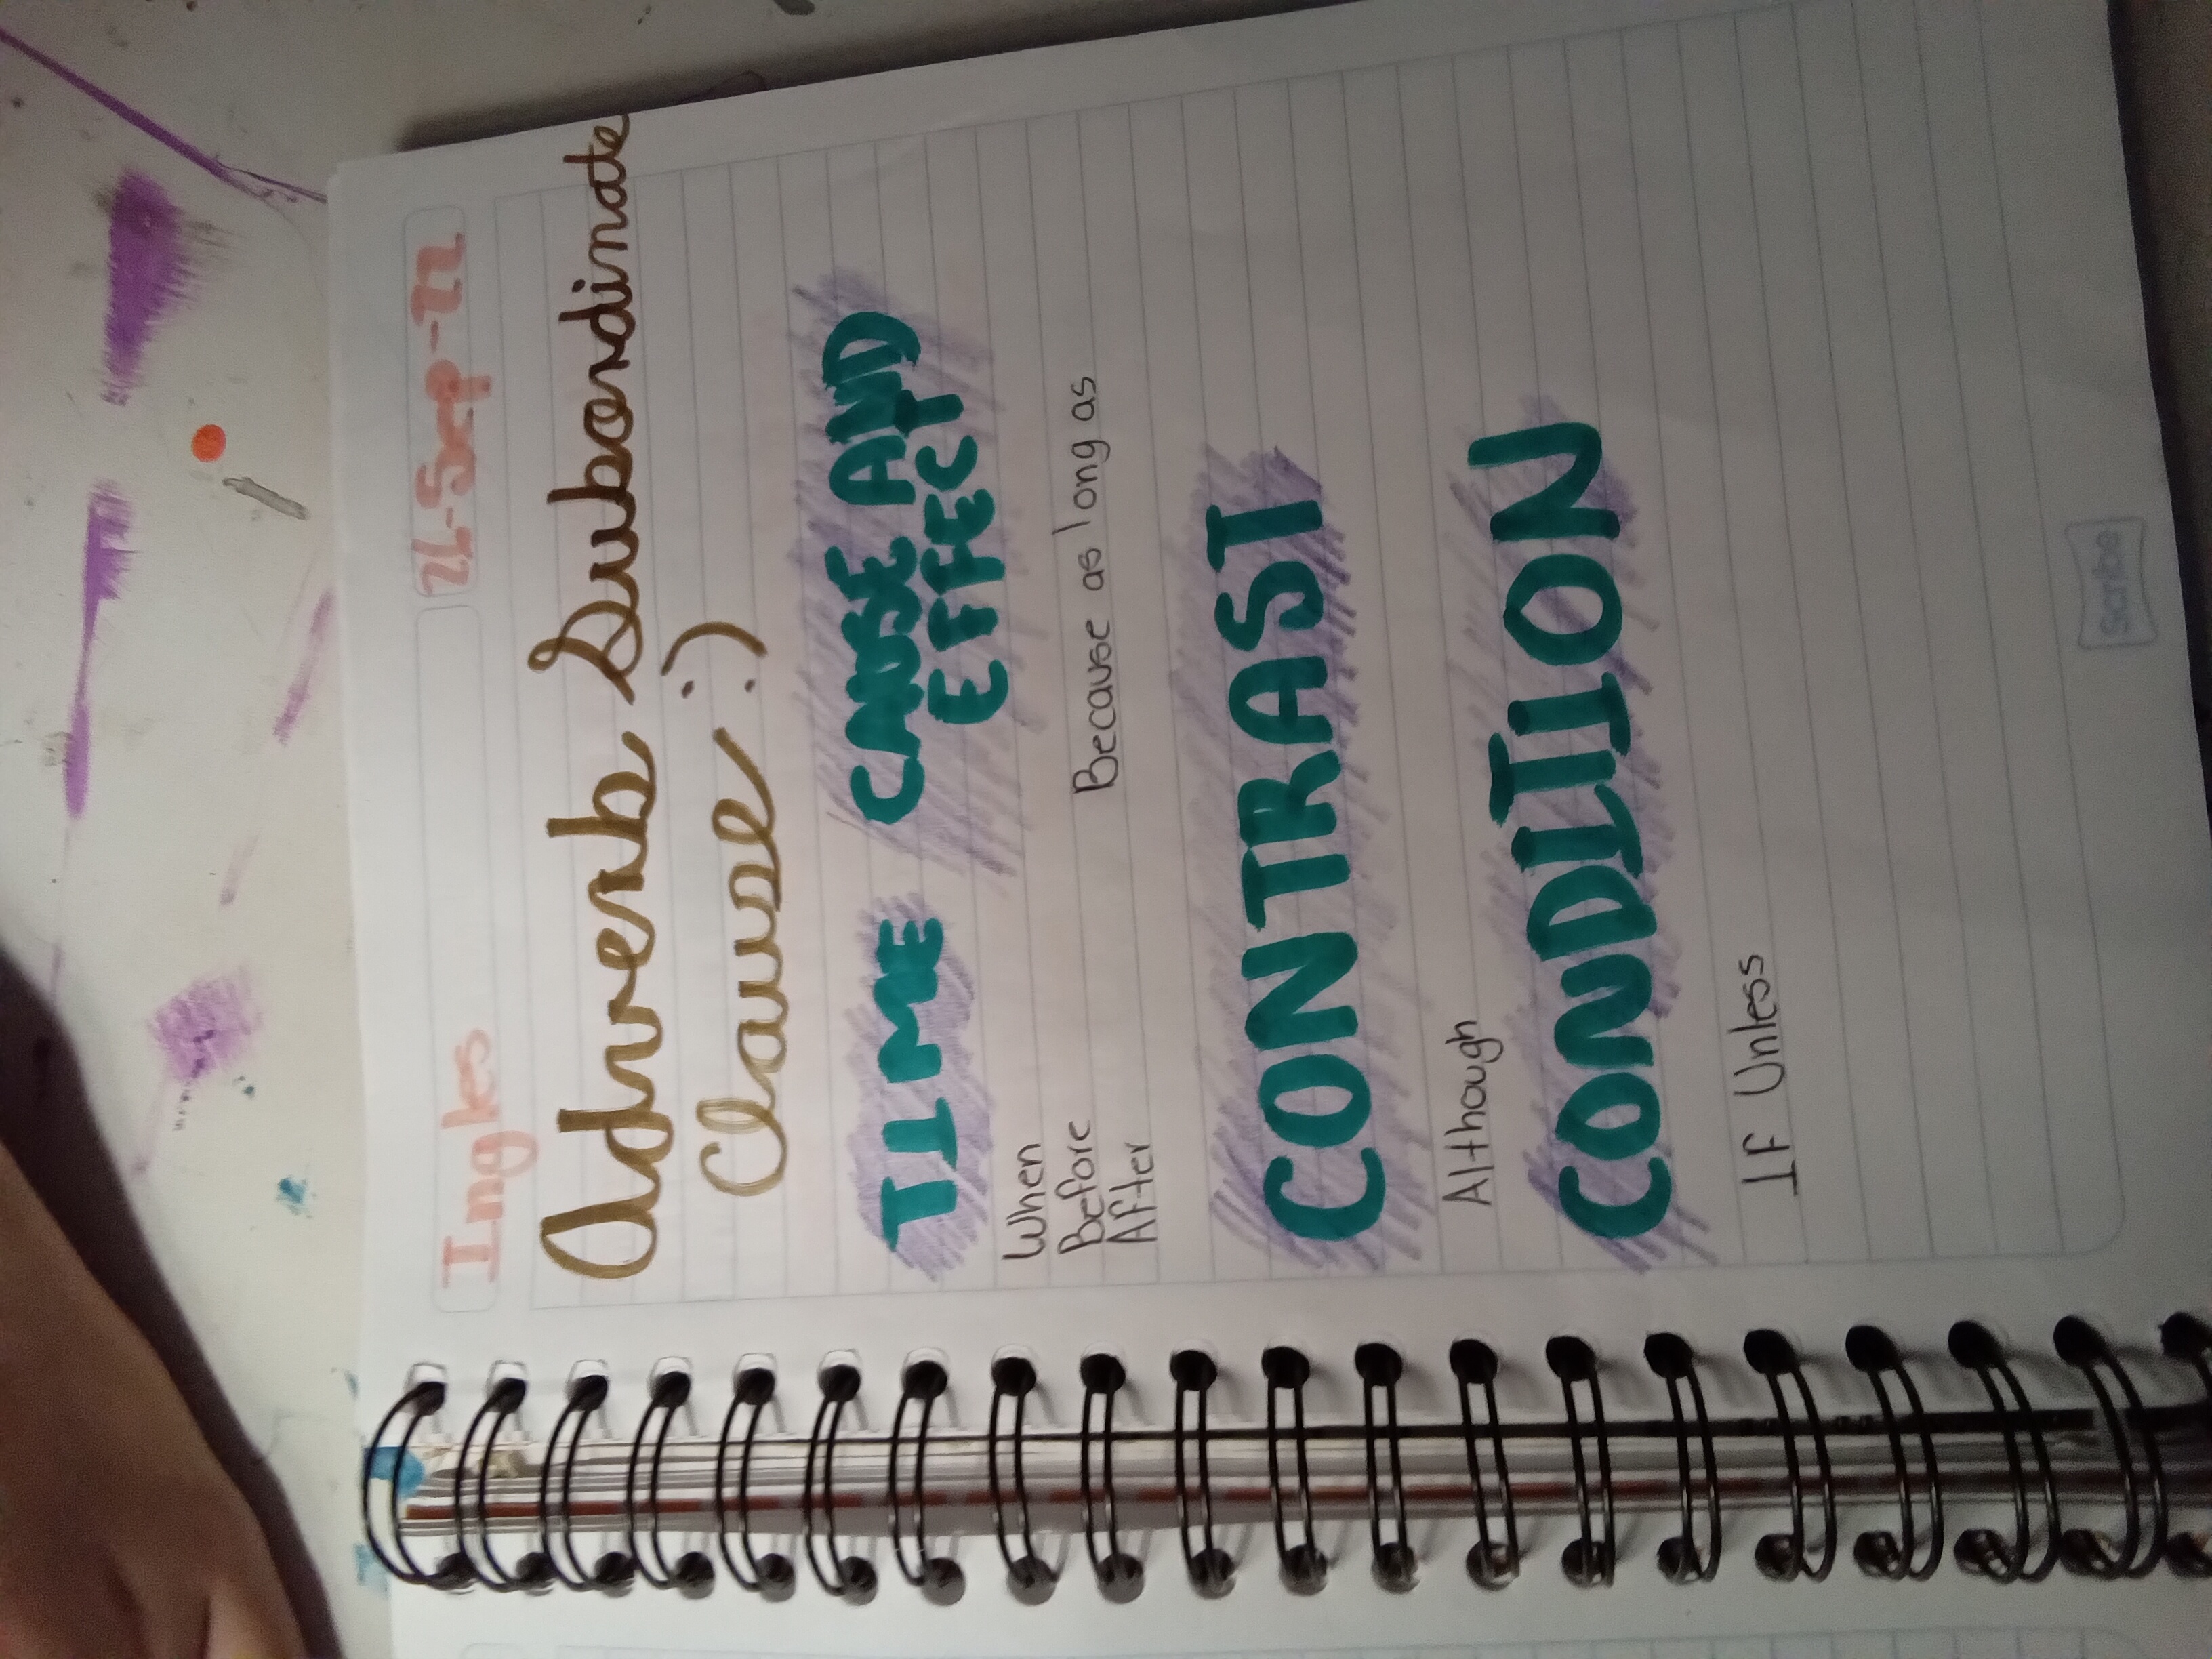 Ingles 26-Sep-22
Adverb Subordinate
Clause :)
TIME CAUSE AND
EFFECT
When
Before Because as long as
After
CONTRAST
Although
CONDITION
IF Unless
Scribe